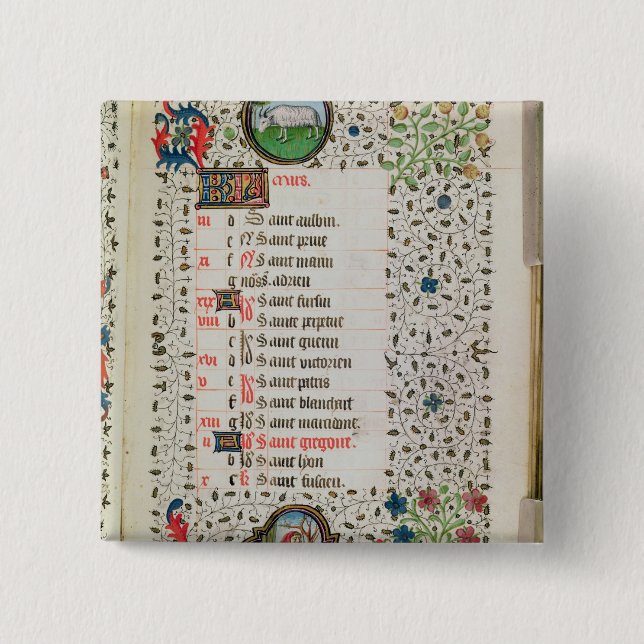 KL Mars.
iii d Saint aulbin.
e N Saint priue
xi f N Saint marin
g noss. adrien
xix A Saint fursin
viii b Sainte perpetue
c Saint guerin
xvi d Saint victorien
v e Saint patris
f Saint blanchart
xiii g Saint macidone
ii A Saint gregoire.
b Saint lyon
x c Saint fuscien.